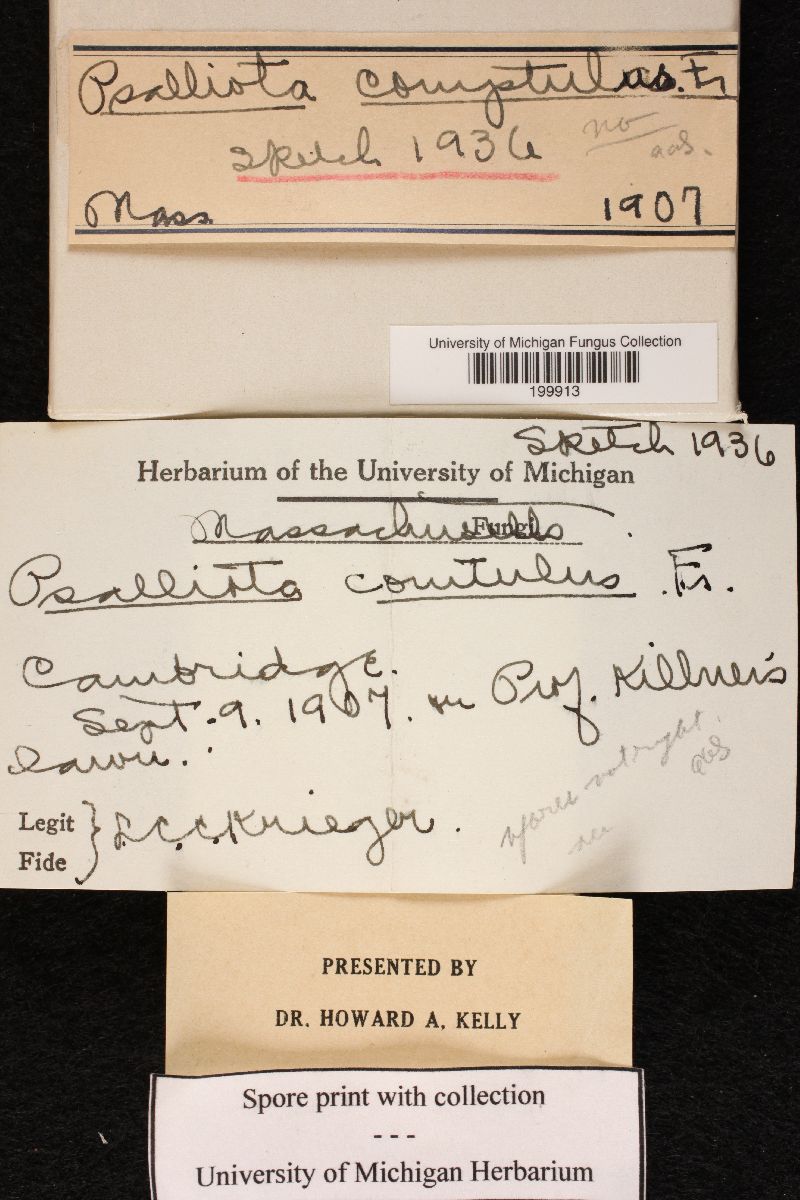 Psalliota comptulus. Fr
Sketch 1936 no
aas.
Mass. 1907
University of Michigan Fungus Collection
199913
Sketch 1936
Herbarium of the University of Michigan
Massachusetts Fungi
Psalliota comtulus. Fr.
Cambridge.
Sept. 9. 1907. on Prof. Killner's
lawn.
spores not right
aas
Legit
Fide
L.C.C. Krieger.
PRESENTED BY
DR. HOWARD A. KELLY
Spore print with collection
- - -
University of Michigan Herbarium